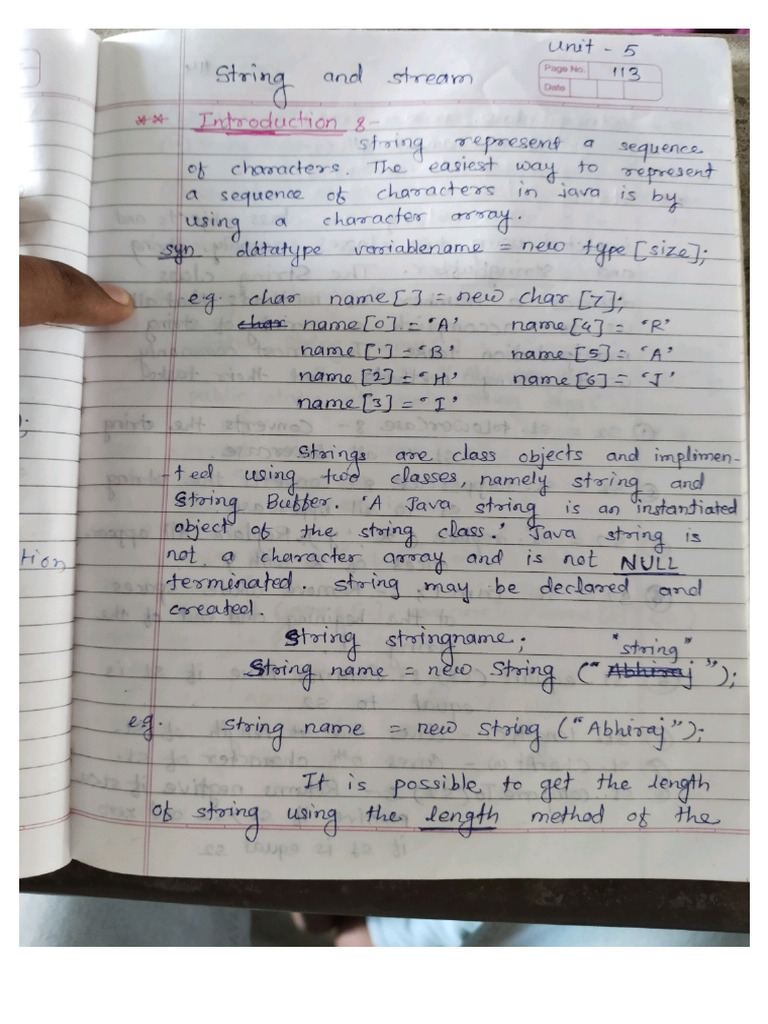 Unit - 5
Page No. 113
Date
String and stream
** Introduction :-
string represent a sequence
of characters. The easiest way to represent
a sequence of characters in java is by
using a character array.
syn datatype variablename = new type [size];
e.g. char name[] = new char [7];
char name[0] = 'A' name[4] = 'R'
name[1] = 'B' name[5] = 'A'
name[2] = 'H' name[6] = 'J'
name[3] = 'I'
Strings are class objects and implimen-
-ted using two classes, namely string and
String Buffer. 'A Java string is an instantiated
object of the string class.' Java string is
not a character array and is not NULL
terminated. string may be declared and
created.
String stringname;
"string"
String name = new String ("Abhiraj");
e.g. String name = new string ("Abhiraj");
It is possible to get the length
of string using the length method of the
tion